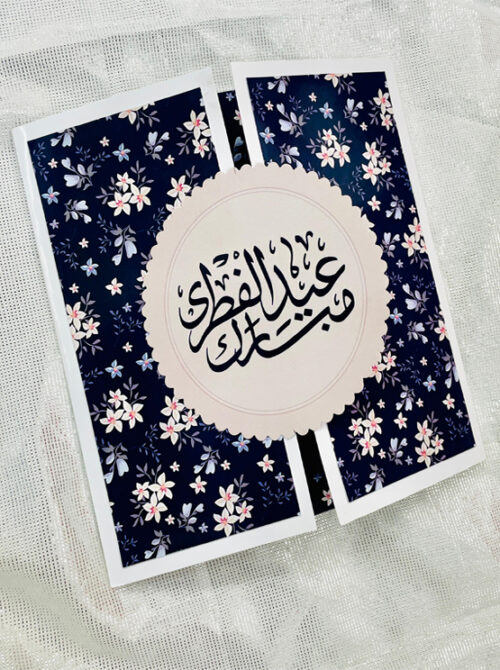 عيد الفطر
مبارك